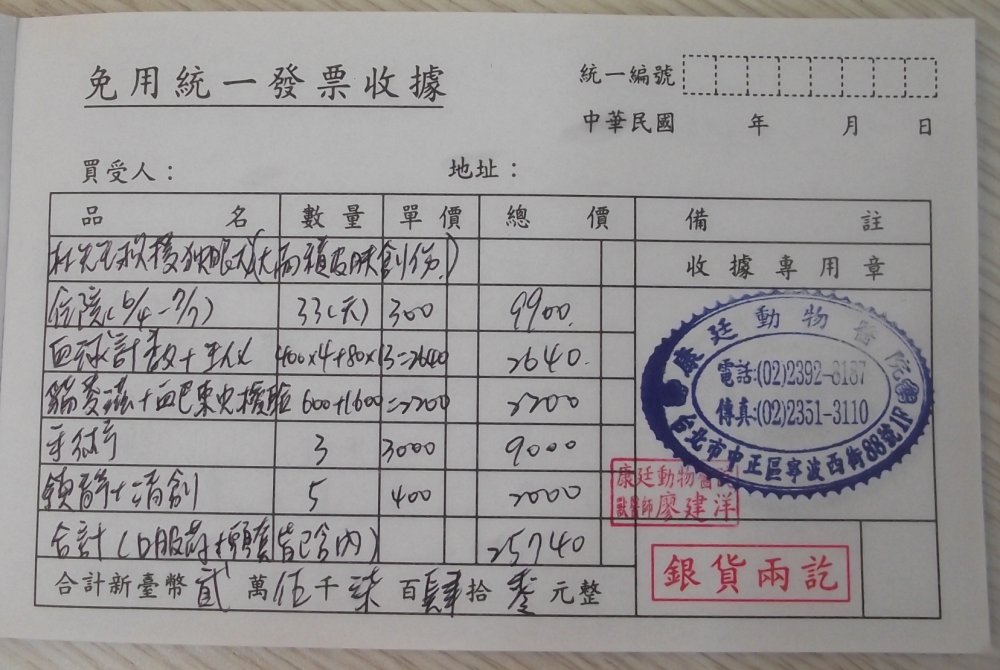 免用統一發票收據
統一編號
中華民國 年 月 日
買受人： 地址：
品名 數量 單價 總價 備註
(大面積皮膚創傷)
收據專用章
住院(6/4-7/7) 33(天) 300 9900
血球計數+生化 400x4+80x13=2640 2640
血巴東虫檢驗 600+1600=2200 2200
手術 3 3000 9000
鎮靜+清創 5 400 2000
合計(口服葯+頭套皆已含內) 25740
合計新臺幣貳萬伍千柒百肆拾零元整
康廷動物醫院
電話:(02)2392-8187
傳真:(02)2351-3110
台北市中正區寧波西街88號1F
康廷動物醫院
獸醫師廖建洋
銀貨兩訖